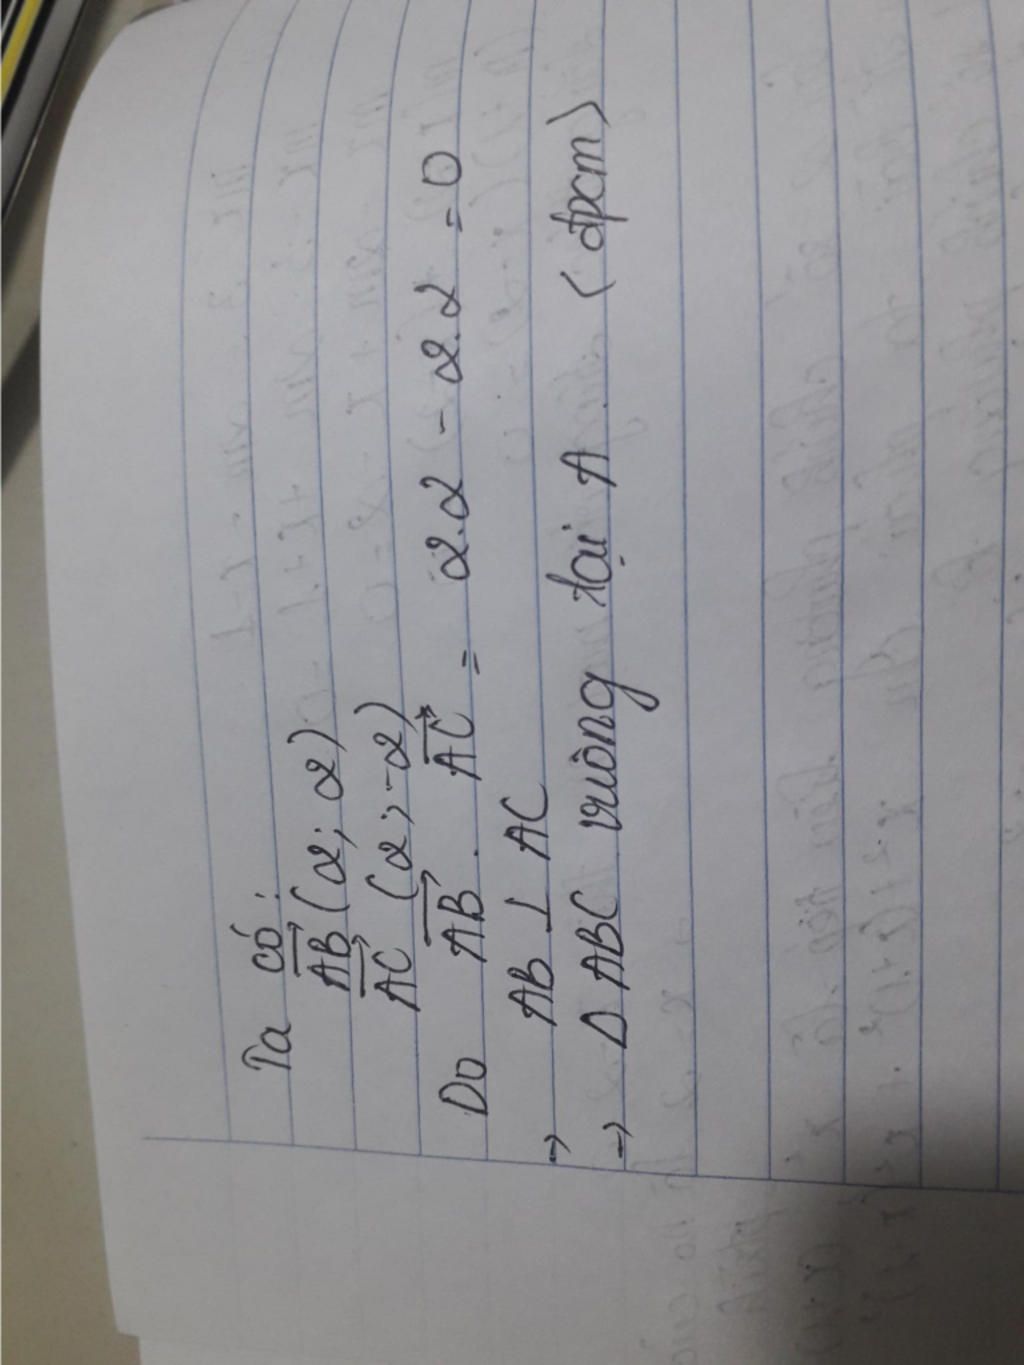 Ta có:
AB (2; 2)
AC (2; -2)
Do AB . AC = 2.2 - 2.2 = 0
→ AB ⊥ AC
→ Δ ABC vuông tại A (đpcm)